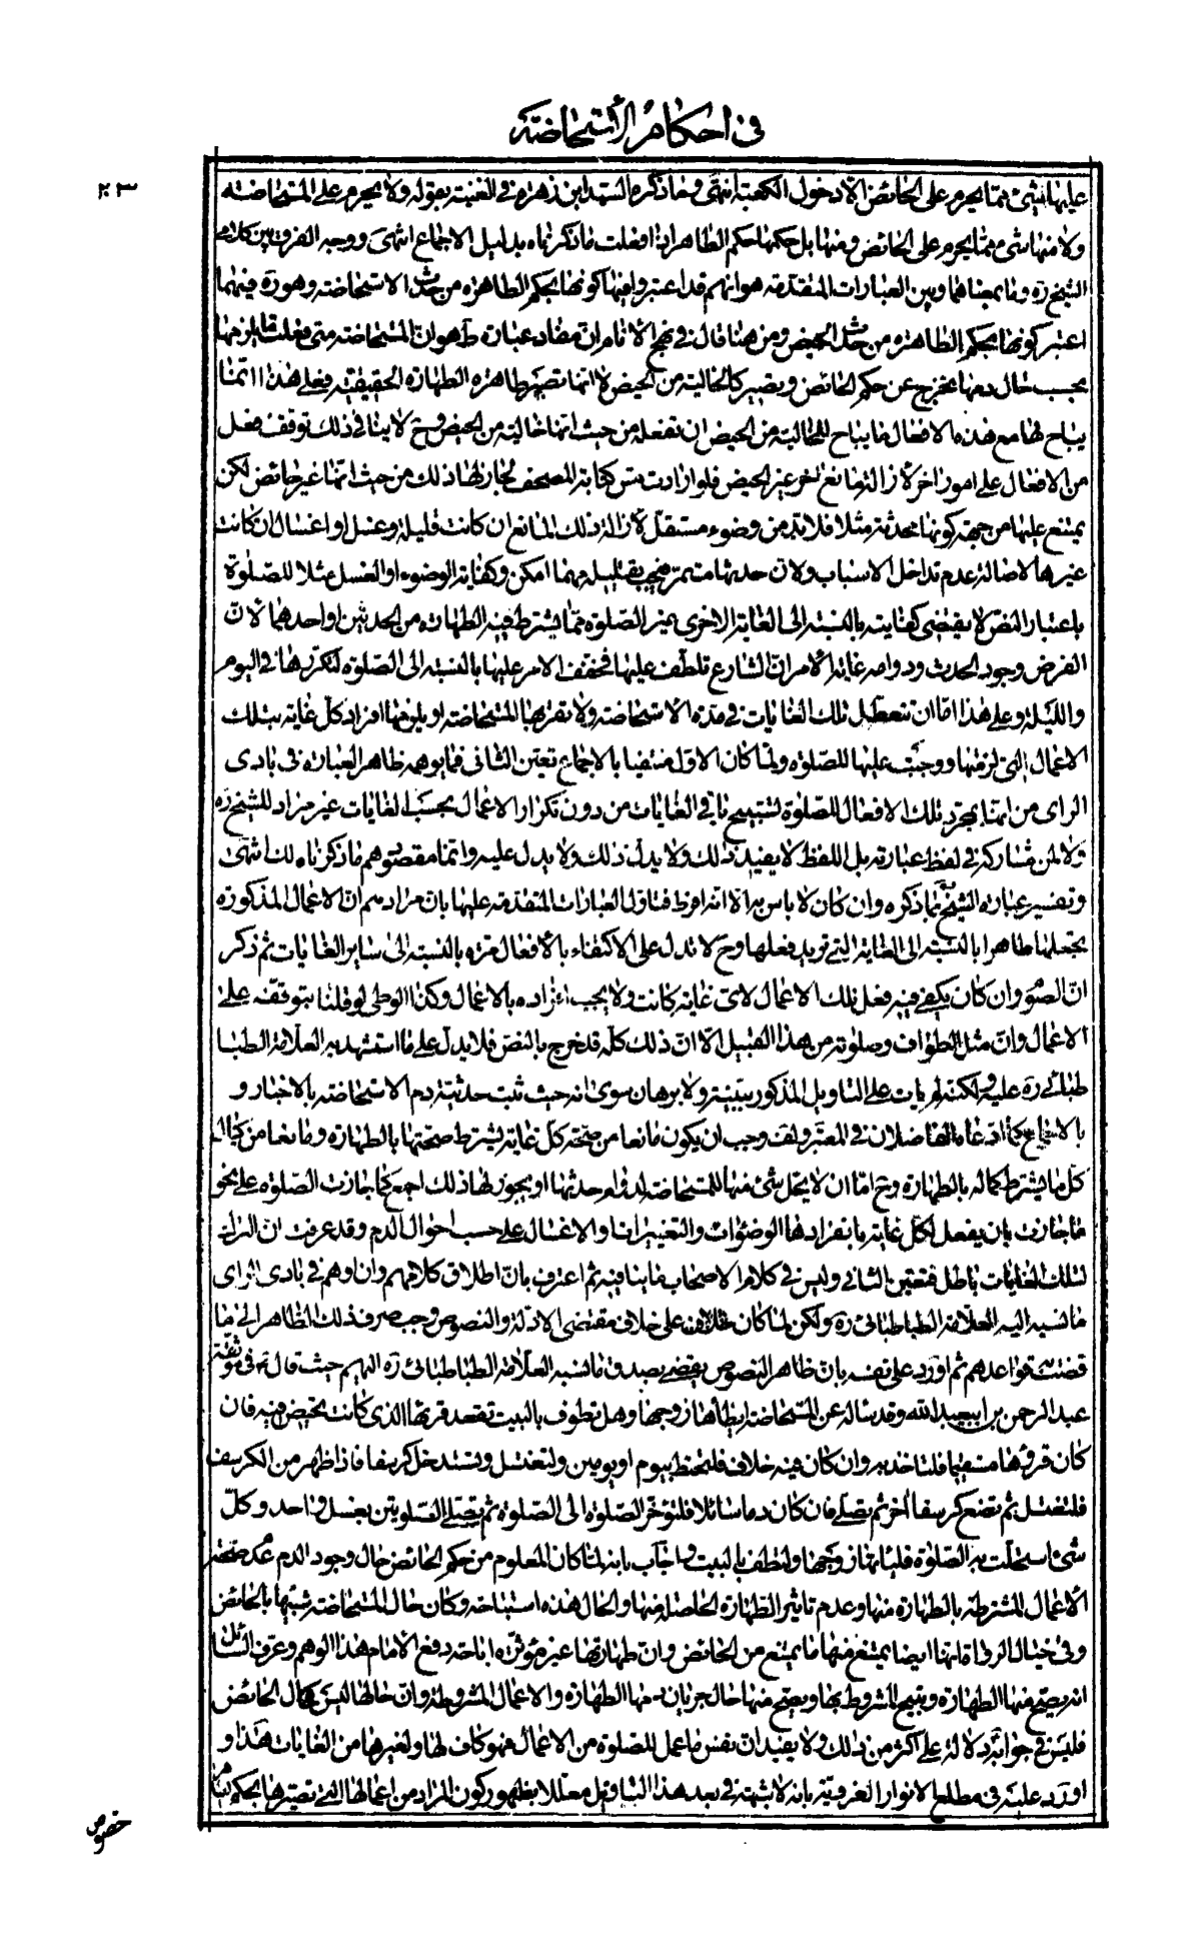 في احكام الأستحاضة
٢٠٣
عليها شئ ممّا يحرم على الحائض الّا دخول الكعبة انتهى وما ذكره السّيد ابن زهره في الغنية بقوله ولا يحرم على المستحاضته
ولا منها شئ ممّا يحرم على الحائض ومنها بل حكمها حكم الطّاهر اذا فعلت ما ذكرناه بدليل الاجماع انتهى ووجه الفرق بين كلام
الشيخ ره وما بمعناهما وبين العبارات المتقدّمة هو انّهم قد اعتبروا فيها كونها بحكم الطاهره من حدث الاستحاضته وهو ره فيهما
اعتبر كونها بحكم الطّاهرة من حدث الحيض ومن هنا قال في نهج الأنام ان مفاد عبارة ط هو ان المستحاضته متى فعلت ما يلزمها
بحسب حال دمها تخرج عن حكم الحائض ويصير كالخالية من الحيض لا انها تصير طاهره الطهارة الحقيقيّة فعلى هذا انّما
يباح لها مع هذه الافعال ما يباح للخالية من الحيض ان تفعله من حيث انّها خالية من الحيض وح لا ينافي ذلك توقّف فعل
من الافعال على امور اخر لأزالة مانع اخر غير الحيض فلو ارادت مسّ كتابة المصحف لجاز لها ذلك من حيث انّها غير حائض لكن
يمتنع عليها من جهة كونها محدثة مثلا فلا بدّ من وضوء مستقلّ لأزالة ذلك المانع ان كانت قليلة وغسل او اغسال ان كانت
غيرها لاصالة عدم تداخل الاسباب ولان حدثها مستمرّ فيجب تقليله مهما امكن وكفاية الوضوء او الغسل مثلا للصّلوة
باعتبار النصّ لا يقتضى كفايته بالنسبة الى الغاية الاخرى غير الصّلوة ممّا يشترط فيه الطهارة من الحدثين او احدهما لأنّ
الفرض وجود الحدث ودوامه غاية الامر انّ الشارع تلطّف عليها فخفّف الامر عليها بالنسبة الى الصّلوة لتكرّرها في اليوم
والليلة وعلى هذا امّا ان تتعطّل تلك الغايات في مدة الاستحاضته ولا تقربها المستحاضته او يلزمها افراد كلّ غاية بتلك
الاعمال التي لزمتها ووجبت عليها للصّلوة ولمّا كان الاول منتفيا بالاجماع تعيّن الثاني فما يوهمه ظاهر العبارة في بادى
الراى من انها بمجرد تلك الافعال للصّلوة تستبيح باقي الغايات من دون تكرار الاعمال بحسب الغايات غير مراد للشيخ ره
ولا لمن شاركه في لفظ عبارته بل اللفظ لا يفيد ذلك ولا يدلّ عليه وانما مقصودهم ما ذكرناه لك انتهى
وتفسير عبارة الشيخ بما ذكره وان كان لا باس به الّا انّه افرط فتاول العبارات المتقدّمة عليها بان مرادهم ان الاعمال المذكورة
تجعلها طاهرا بالنّسبة الى الغاية التي تريد فعلها وح لا تدل على الاكتفاء بالأفعال مرّه بالنسبة الى ساير الغايات ثم ذكر
انّ الصّوم وان كان يكفي فيه فعل تلك الاعمال لاىّ غاية كانت ولا يجب افراده بالاعمال وكذا الوطى لو قلنا بتوقّفه على
الاعمال وانّ مثل الطواف وصلوته من هذا القبيل الّا انّ ذلك كلّه قد خرج بالنصّ فلا يدلّ على ما استشهد به العلّامة الطبا
طبائي ره عليه ولكنه لم يات على التاويل المذكور ببيّنة ولا برهان سوى انه حيث ثبت حدثيّة دم الاستحاضته بالاخبار و
بالاجماع كما ادّعاه الفاضلان في المعتبر ولف وجب ان يكون مانعا من صحّة كل غاية يشترط صحّتها بالطهارة ومانعا من كمال
كلّ ما يشترط كماله بالطهارة وح امّا ان لا يحلّ شئ منها للمستحاضته لدوام حدثها او يجوز لها ذلك اجمع كما جازت الصّلوة على نحو
ما جازت بان يفعل لكل غاية بانفرادها الوضوءات والتغييرات والاغسال على حسب احوال الدم وقد عرفت ان الترك
لتلك الغايات باطل فتعيّن الثاني وليس في كلام الاصحاب ما ينافيه ثم اعترف بان اطلاق كلامهم وان اوهم في بادى الراى
ما نسبه اليه العلّامة الطباطبائى ره ولكن لما كان على خلاف مقتضى الادلة والنصوص وجب صرف ذلك الظاهر الى ما
قضت به قواعدهم ثم اورد على نفسه بان ظاهر النصوص يقضى بصدق ما نسبه العلّامة الطباطبائى ره اليهم حيث قال في موثّقة
عبد الرحمن بن ابيعبد الله وقد ساله عن المستحاضته ايطأها زوجها وهل تطوف بالبيت تقعد قرءها الذى كانت تحيض فيه فان
كان قرؤها مستقيما فلتاخذ به وان كان فيه خلاف فلتحتط بيوم او يومين ولتغتسل وتستدخل كرسفا فاذا ظهر من الكرسف
فلتغتسل ثم تضع كرسفا اخر ثم تصلى فان كان دما سائلا فلتؤخّر الصّلوة الى الصّلوة ثم تصلّى الصّلوتين بغسل واحد وكلّ
شئ استحلّت به الصّلوة فلياتها زوجها ولتطف بالبيت واجاب بانه لما كان المعلوم من حكم الحائض حال وجود الدم عدم صحّة
الأعمال المشروطة بالطهارة منها وعدم تاثير الطهارة الحاصلة منها والحال هذه استباحة وكان حال المستحاضته شبيها بالحائض
وفى خيال الرواة انها ايضا يمتنع منها ما يمتنع من الحائض وان طهارتها غير مؤثّره اباحة دفع الأمام هذا الوهم وعرّف السّائل
انه يصح منها الطهارة وتبيح المشروط بها ويصح منها حال جريان دمها الطهارة والاعمال المشروطة وانّ حالها ليس كحال الحائض
فليس في جوابه دلالة على اكثر من ذلك ولا يفيد ان نفس ما عمل للصّلوة من الاعمال فهو كاف لها ولغيرها من الغايات هذا و
اورد عليه في مطلع الانوار الغرويّة بانه لا شبهة في بعد هذا التاويل معلّلا بظهور كون المراد من اعمالها التي تصيّرها بحكم
خصوص